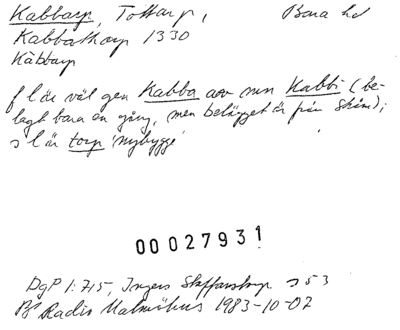 Kabbarp, Tottarp, Bara hd
Kabbathorp 1330
Kabbarp
f l är väl gen Kabba av mn Kabbi (be-
lagt bara en gång, men belägget är från Skåne);
s l är torp 'nybygge'
00027931
DgP 1:715, Ingers Staffanstorp s 53
BJ Radio Malmöhus 1983-10-02